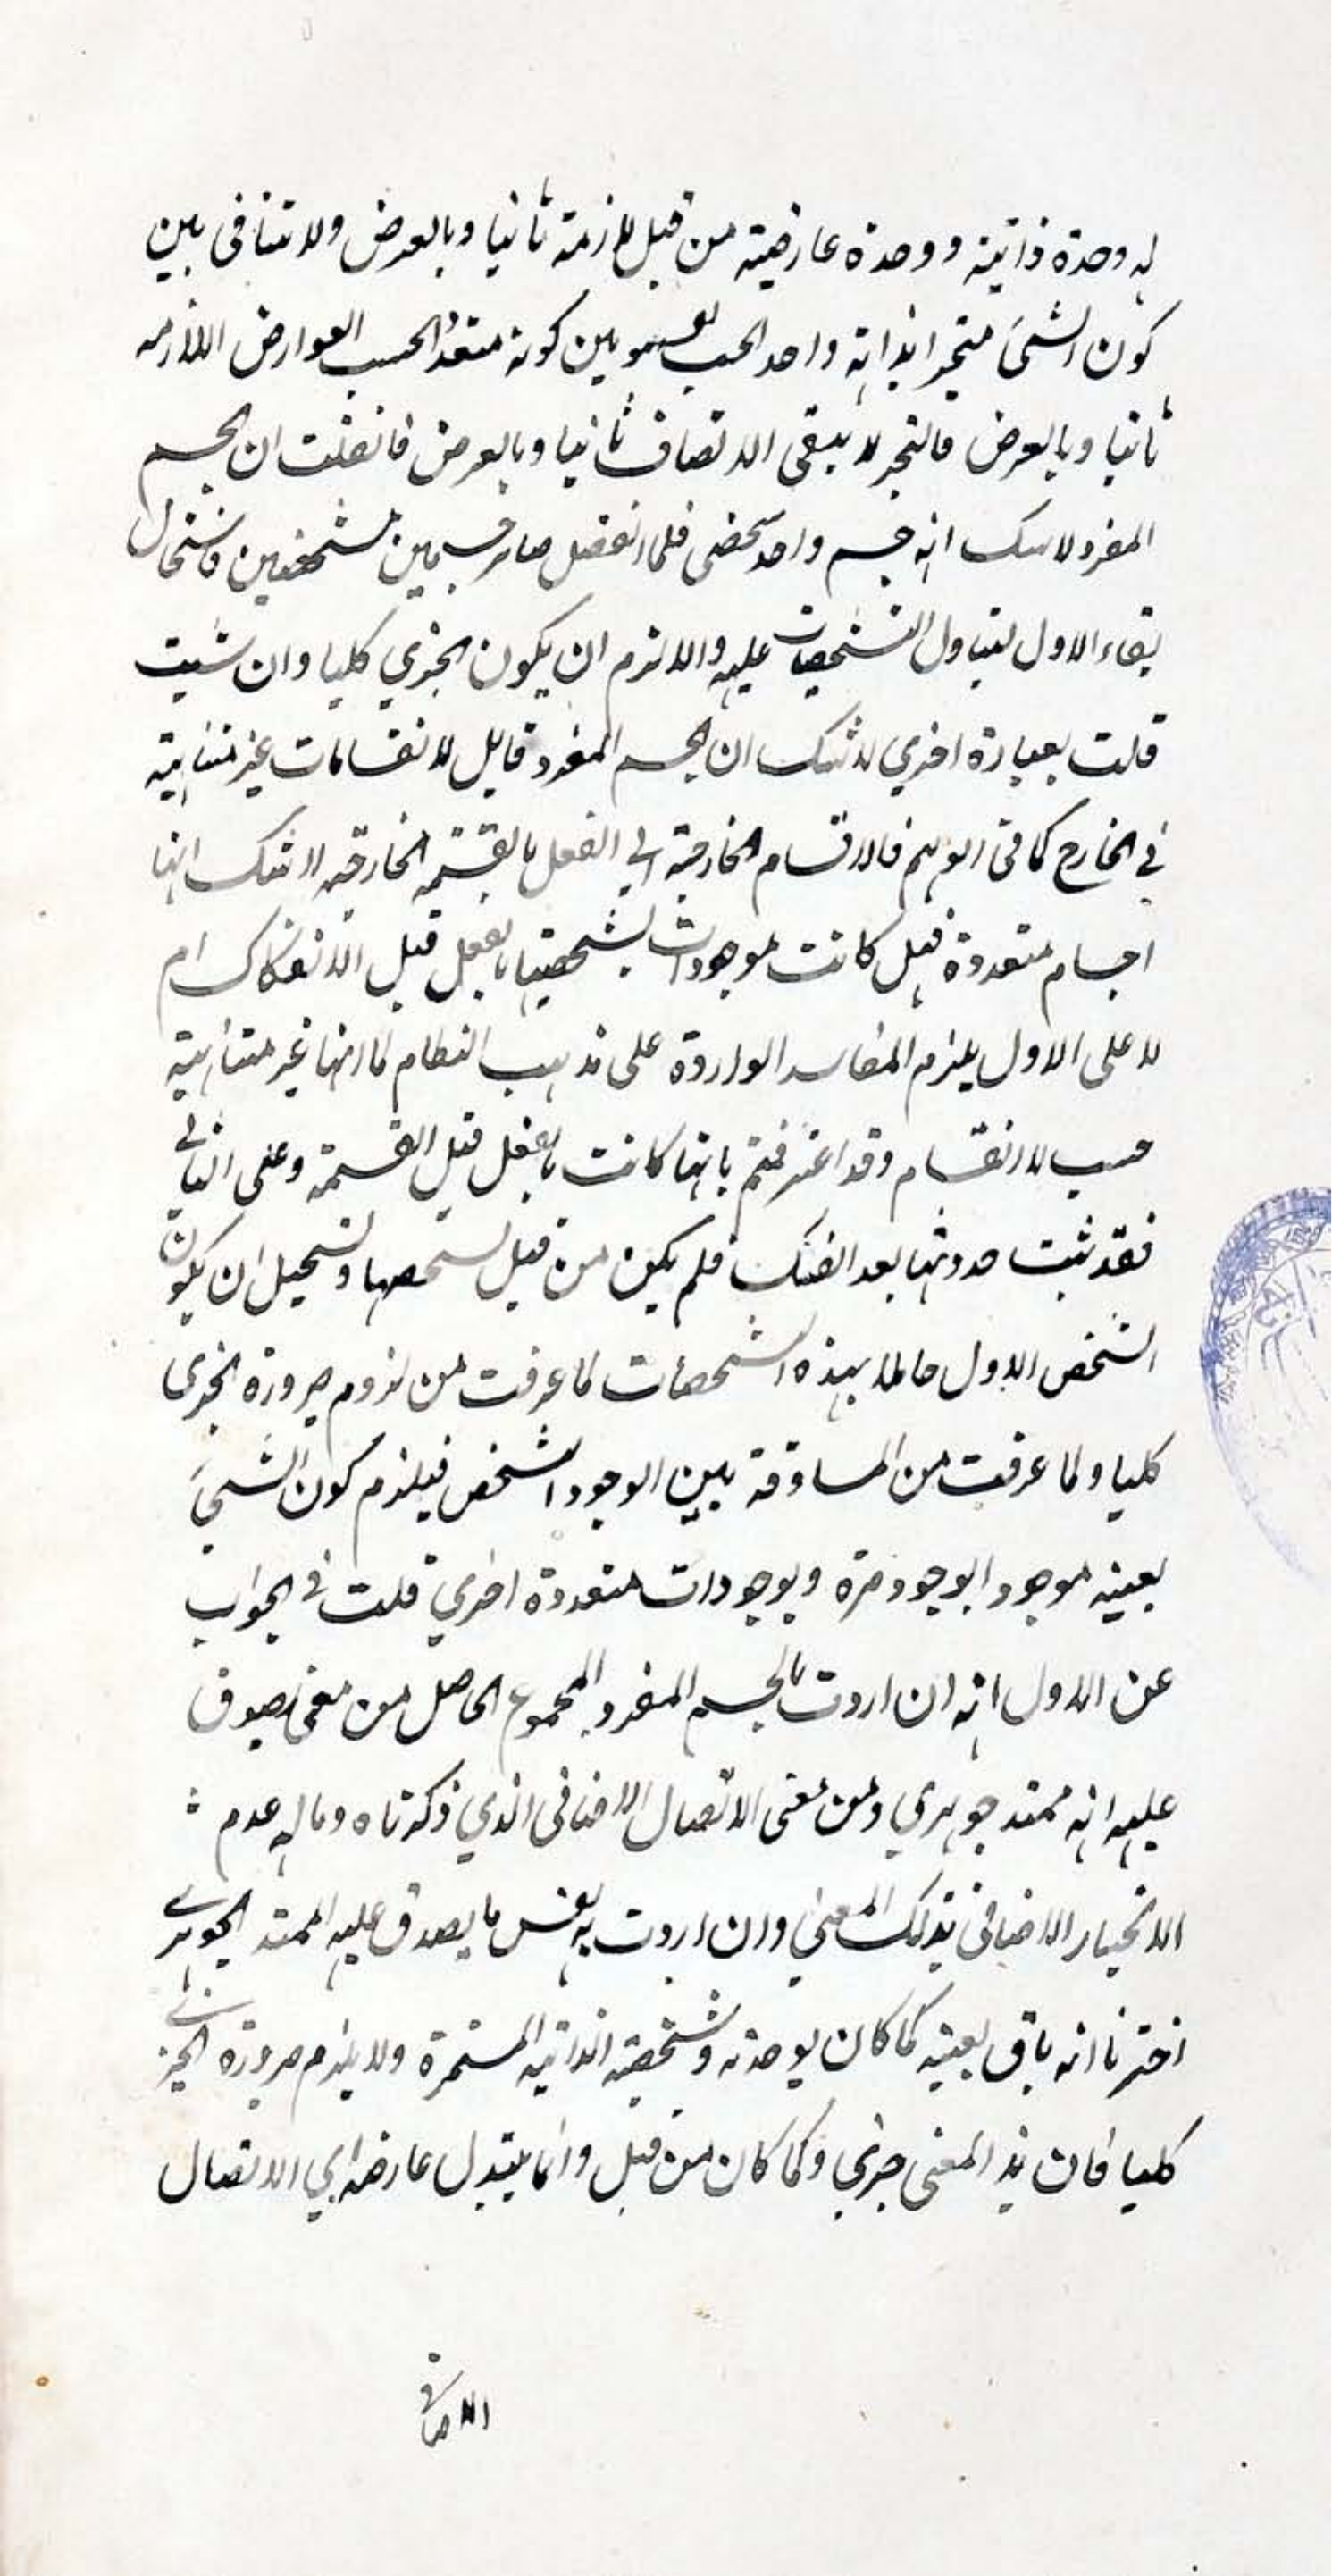 له وحدة ذاتية ووحدة عارضية من قبل لازمة ثانيا وبالعرض ولا تنافى بين
كون الشئ متحيزا بذاته واحد الحسب نفسه وبين كونه متعددا لحسب العوارض اللازمه
ثانيا وبالعرض فالتحيز لا يبقى الاتصاف ثانيا وبالعرض فان قلت ان الجسم
المفرد لا شك انه جسم واحد شخصى فلما انفصل صار جسمين مشخصين فاستحال
بقاء الاول لتبادل التشخصات عليه والا لزم ان يكون الجزي كليا وان شئت
قلت بعبارة اخري لا شك ان الجسم المفرد قابل لانقسامات غير متناهية
في الخارج كما فى الوهم فالاقسام الخارجة الي الفعل بالقسمه الخارجيه لا شك انها
اجسام متعددة فهل كانت موجودات بشخصيتها بالفعل قبل الانفكاك ام
لا على الاول يلزم المفاسد الواردة على مذهب النظام لما انها غير متناهية
حسب الانقسام وقد اعترفتم بانها كانت بالفعل قبل القسمة وعلى الثاني
فقد ثبت حدوثها بعد الفك فلم يكن من قبل تشخصها وتستحيل ان يكون
الشخص الاول حاملا بهذه التشخصات لما عرفت من لزوم صرورة الجزى
كليا ولما عرفت من المساوقة بين الوجود والشخص فيلزم كون الشئ
بعينه موجودا بوجود مرة وبوجودات متعددة اخري قلت في الجواب
عن الاول انه ان اردت بالجسم المفرد المجموع الحاصل من معنى يصدق
عليه انه ممتد جوهري ومن معنى الاتصال الاضافى الذي ذكرناه وما له عدم
الانحياز الاضافى بذلك المعني وان اردت به نفس ما يصدق عليه الممتد الجوهري
اخترنا انه باق بعينه كما كان بوحدته وشخصيته الذاتيه المستمرة ولا يلزم صرورة الجزي
كليا فان هذا المعنى جزئي وكما كان من قبل وانما يتبدل عارضه اي الاتصال
الاضافي